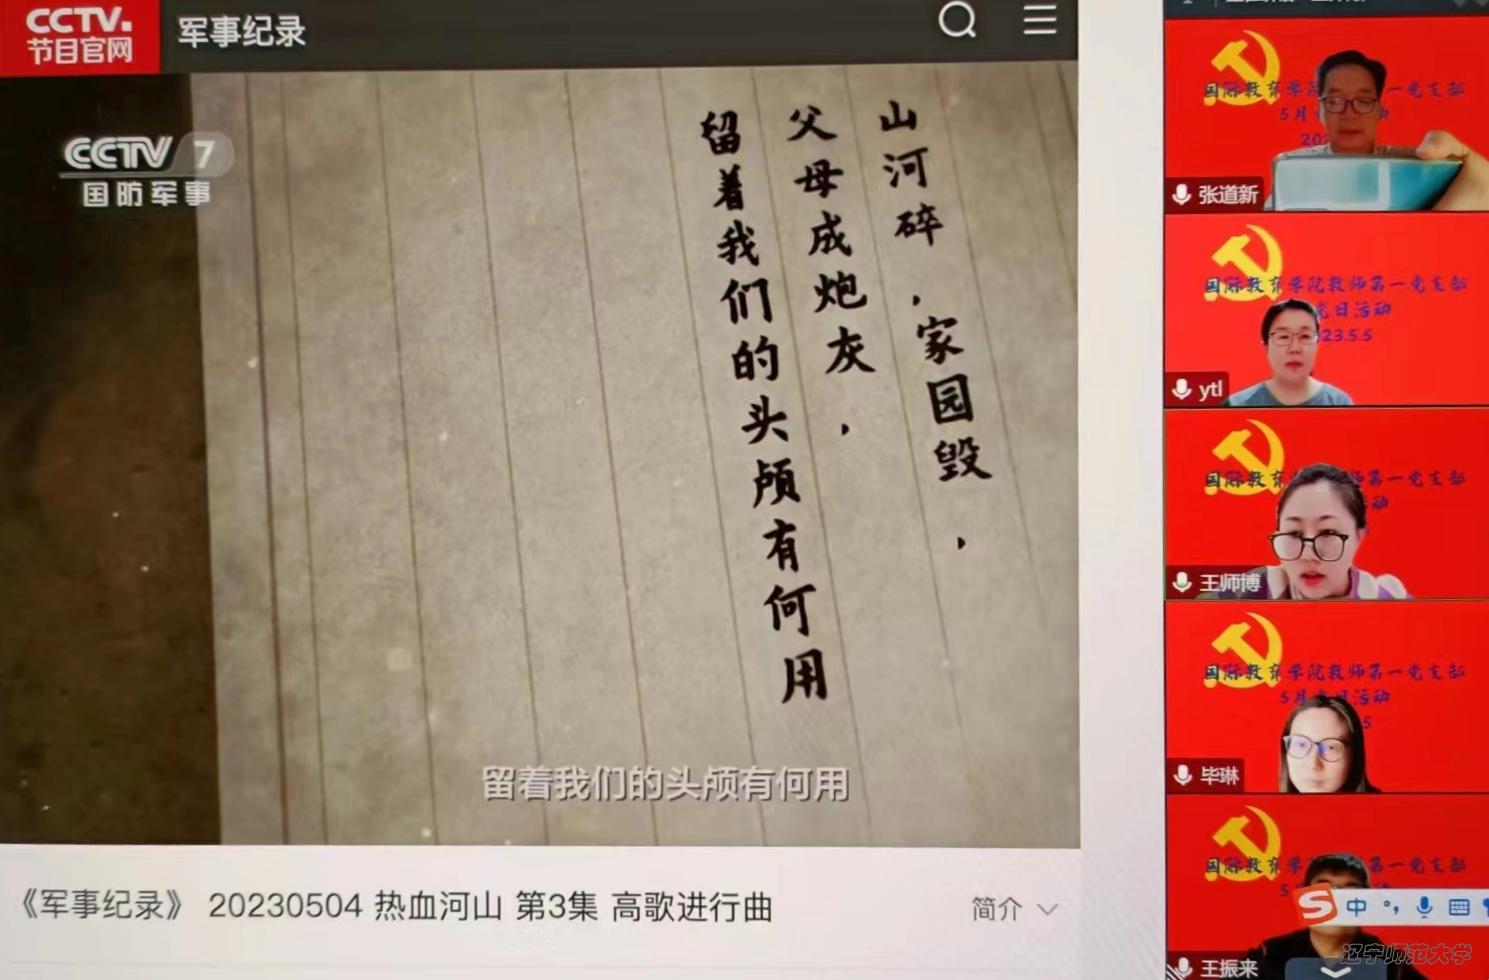 CCTV.
节目官网
军事纪录
CCTV 7
国防军事
山河碎，家园毁，
父母成炮灰，
留着我们的头颅有何用
留着我们的头颅有何用
《军事纪录》 20230504 热血河山 第3集 高歌进行曲
简介
国际教育学院 一党支部
5月 动
张道新
国际教育学院教师第一党支部
党日活动
23.5.5
ytl
国际教育 师第一党支部
动
王师博
国际教育学院教师第一党支部
5月党日活动
5
毕琳
国际教育 第一党支部
5
中
王振来
辽宁师范大学